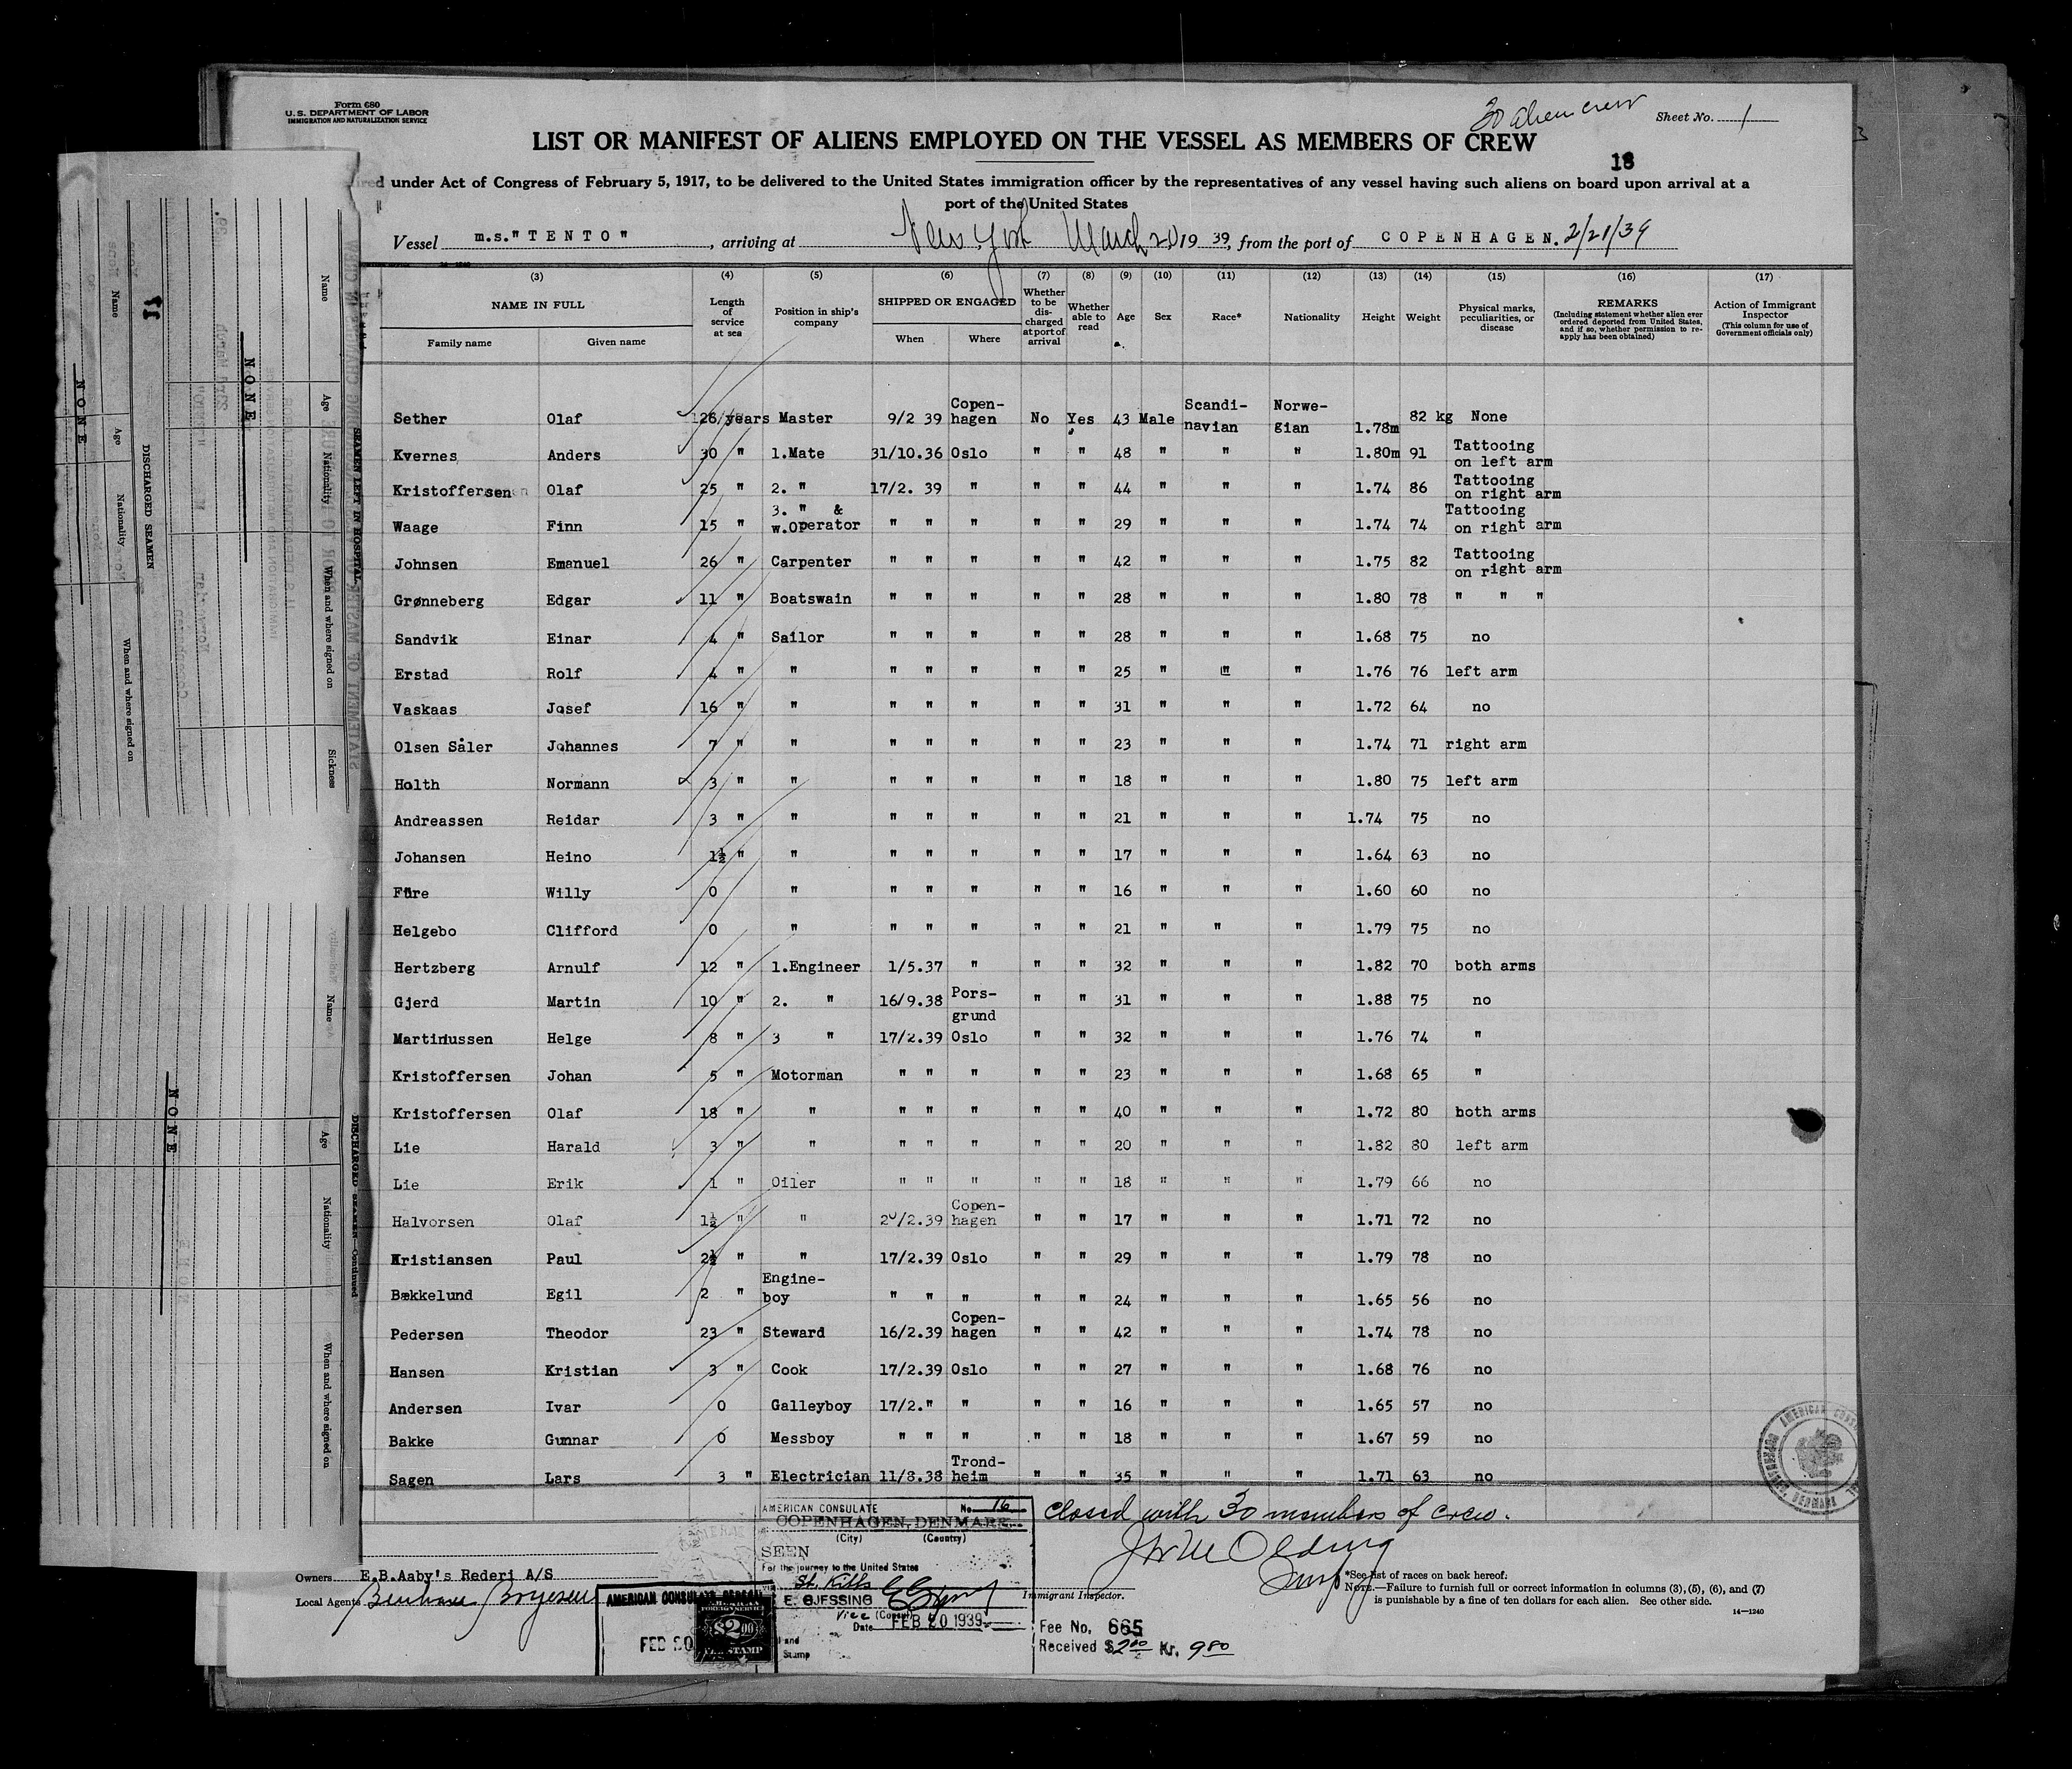 Form 680
U. S. DEPARTMENT OF LABOR
IMMIGRATION AND NATURALIZATION SERVICE
30 alien crew
Sheet No. 1
LIST OR MANIFEST OF ALIENS EMPLOYED ON THE VESSEL AS MEMBERS OF CREW
18
under Act of Congress of February 5, 1917, to be delivered to the United States immigration officer by the representatives of any vessel having such aliens on board upon arrival at a
port of the United States
Vessel m.s."TENTO", arriving at New York March 20 1939, from the port of COPENHAGEN. 2/21/39
(3) (4) (5) (6) (7) (8) (9) (10) (11) (12) (13) (14) (15) (16) (17)
NAME IN FULL Family name Given name Length of service at sea Position in ship's company SHIPPED OR ENGAGED When Where Whether to be discharged at port of arrival Whether able to read Age Sex Race* Nationality Height Weight Physical marks, peculiarities, or disease REMARKS (Including statement whether alien ever ordered deported from United States, and if so, whether permission to reapply has been obtained) Action of Immigrant Inspector (This column for use of Government officials only)
Sether Olaf 26 years Master 9/2 39 Copen-hagen No Yes 43 Male Scandi-navian Norwe-gian 1.78m 82 kg None
Kvernes Anders 30 " 1.Mate 31/10.36 Oslo " " 48 " " " 1.80m 91 Tattooing on left arm
Kristoffersen Olaf 25 " 2. " 17/2. 39 " " " 44 " " " 1.74 86 Tattooing on right arm
Waage Finn 15 " 3. " & w.Operator " " " " " 29 " " " 1.74 74 Tattooing on right arm
Johnsen Emanuel 26 " Carpenter " " " " " 42 " " " 1.75 82 Tattooing on right arm
Grønneberg Edgar 11 " Boatswain " " " " " 28 " " " 1.80 78 " " "
Sandvik Einar 4 " Sailor " " " " " 28 " " " 1.68 75 no
Erstad Rolf 4 " " " " " " " 25 " " " 1.76 76 left arm
Vaskaas Josef 16 " " " " " " " 31 " " " 1.72 64 no
Olsen Såler Johannes 7 " " " " " " " 23 " " " 1.74 71 right arm
Holth Normann 3 " " " " " " " 18 " " " 1.80 75 left arm
Andreassen Reidar 3 " " " " " " " 21 " " " 1.74 75 no
Johansen Heino 1½ " " " " " " " 17 " " " 1.64 63 no
Füre Willy 0 " " " " " " 16 " " " 1.60 60 no
Helgebo Clifford 0 " " " " " " 21 " " " 1.79 75 no
Hertzberg Arnulf 12 " 1.Engineer 1/5.37 " " " 32 " " " 1.82 70 both arms
Gjerd Martin 10 " 2. " 16/9.38 Pors-grund " " 31 " " " 1.88 75 no
Martiniussen Helge 8 " 3 " 17/2.39 Oslo " " 32 " " " 1.76 74 "
Kristoffersen Johan 5 " Motorman " " " " " 23 " " " 1.68 65 "
Kristoffersen Olaf 18 " " " " " " " 40 " " " 1.72 80 both arms
Lie Harald 3 " " " " " " " 20 " " " 1.82 80 left arm
Lie Erik 1 " Oiler " " " " " 18 " " " 1.79 66 no
Halvorsen Olaf 1½ " " 20/2.39 Copen-hagen " " 17 " " " 1.71 72 no
Kristiansen Paul 2½ " " 17/2.39 Oslo " " 29 " " " 1.79 78 no
Bækkelund Egil 2 " Engine-boy " " " " " 24 " " " 1.65 56 no
Pedersen Theodor 23 " Steward 16/2.39 Copen-hagen " " 42 " " " 1.74 78 no
Hansen Kristian 3 " Cook 17/2.39 Oslo " " 27 " " " 1.68 76 no
Andersen Ivar 0 Galleyboy 17/2." " " " 16 " " " 1.65 57 no
Bakke Gunnar 0 Messboy " " " " " 18 " " " 1.67 59 no
Sagen Lars 3 " Electrician 11/8.38 Trond-heim " " 35 " " " 1.71 63 no
AMERICAN CONSULATE No. 16
COPENHAGEN, DENMARK
(City) (Country)
SEEN
For the journey to the United States
via St. Kitts
E. GJESSING
Vice (Consul)
Date FEB 20 1939
closed with 30 members of crew.
Owners E.B.Aaby's Rederi A/S
Local Agents
AMERICAN CONSUL
AMERICAN FOREIGN SERVICE
$2.00
FEE STAMP
FEB 20
and
Stamp
Immigrant Inspector.
Fee No. 665
Received $2.00 Kr. 9.80
*See list of races on back hereof.
NOTE.—Failure to furnish full or correct information in columns (3), (5), (6), and (7)
is punishable by a fine of ten dollars for each alien. See other side.
14—1240
AMERICAN CONSULATE
DENMARK
Name Age Nationality When and where signed on Sickness
SEAMEN LEFT IN HOSPITAL
NONE
DISCHARGED SEAMEN
Name Age Nationality When and where signed on
NONE
11
DISCHARGED SEAMEN—Continued
Name Age Nationality When and where signed on
NONE